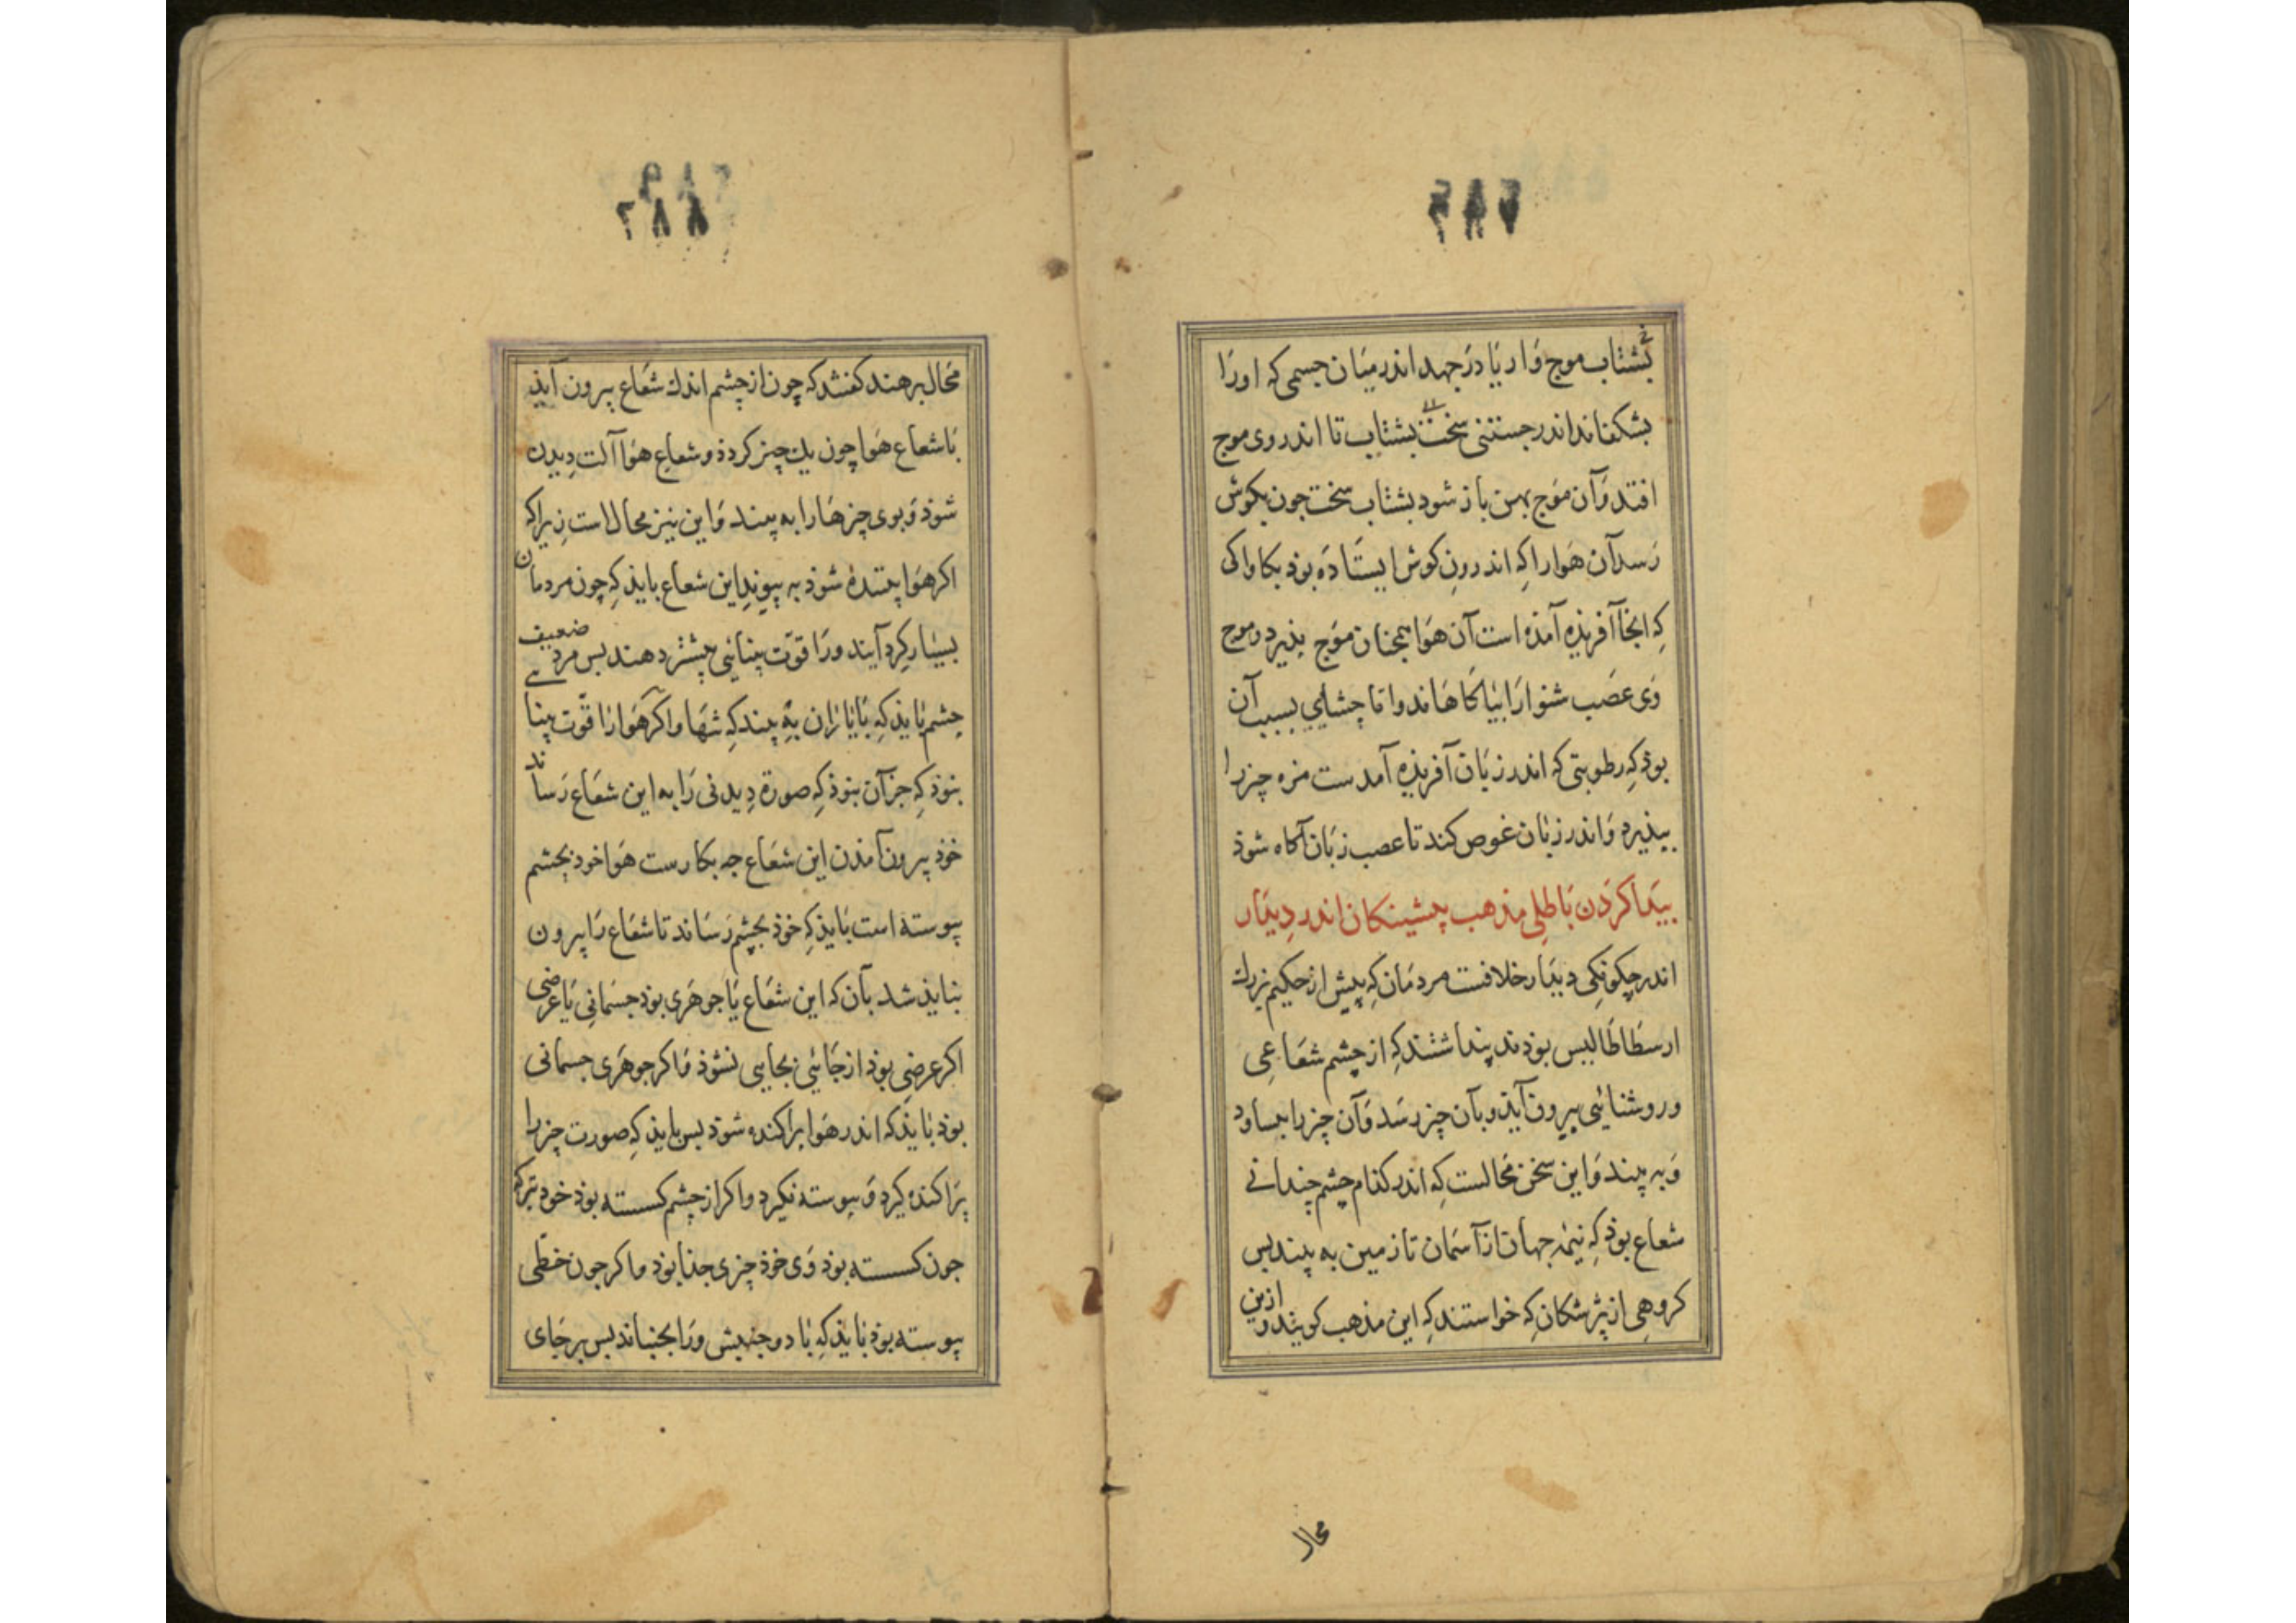 ۲۸۷
بشتاب موج وار یا درجهد اندر میان جسمی که اورا
بشکفاند اندر جستنی سخت بشتاب تا اندر وی موج
افتد وآن موج بهن باز شود بشتاب سخت جون بکوش
رسد آن هوا را که اندرون کوش ایستاده بوذ بکاواکی
که آنجا آفریذه آمذه است آن هوا همجنان موج بذیرد وموج
وی عصب شنوا را بیاکاهاند واما چشایی بسبب آن
بوذ که رطوبتی که اندر زبان آفریذه آمدست مزه چیز را
بپذیرد واندر زبان غوص کند تا عصب زبان آکاه شوذ
پیدا کردن باطلی مذهب پیشینکان اندر دیذار
اندر چکونکی دیذار خلافست مردمان که پیش از حکیم بزرک
ارسطاطالیس بوذند پنداشتند که از چشم شعاعی
وروشنائیی بیرون آیذ وبآن چیز رسد وآن چیز را ببساود
وبه بیند واین سخن محالست که اندر کذام چشم چندانی
شعاع بوذ که نیمه جهان از آسمان تا زمین به بیند بس
کروهی از پژشکان که خواستند که این مذهب کویند وازین
محال
۲۸۸
محال برهند کفتند که چون از چشم اندک شعاع بیرون آیذ
با شعاع هوا چون یک چیز کردذ وشعاع هوا آلت دیدن
شوذ وبوی چیزها را به بیند واین نیز محال است زیرا که
اکر هوا بیننده شوذ به پیوند این شعاع بایذ که چون مردمان
بسیار کرد آیند ورا قوت بینائی بیشتر دهند بس مردی ضعیف
چشم بایذ که با یاران به بیند که تنها واکر هوا را قوت بینا
بنوذ که جز آن بنوذ که صورة دیدنی را به این شعاع رساند
خوذ بیرون آمذن این شعاع جه بکارست هوا خود بچشم
پیوسته است بایذ که خوذ بچشم رساند تا شعاع را بیرون
نبایذ شد بآن که این شعاع یا جوهری بوذ جسمانی یا عرضی
اکر عرضی بوذ از جائیی بجایی نشوذ واکر جوهری جسمانی
بوذ بایذ که اندر هوا پراکنده شوذ بس بایذ که صورت چیز را
پراکنده کیرد وپیوسته نکیرد واکر از چشم کسسته بوذ خود بترکه
جون کسسته بوذ وی خوذ چیزی جذا بوذ واکر جون خطی
پیوسته بوذ بایذ که باد وجنبش ورا بجنباند بس برجای